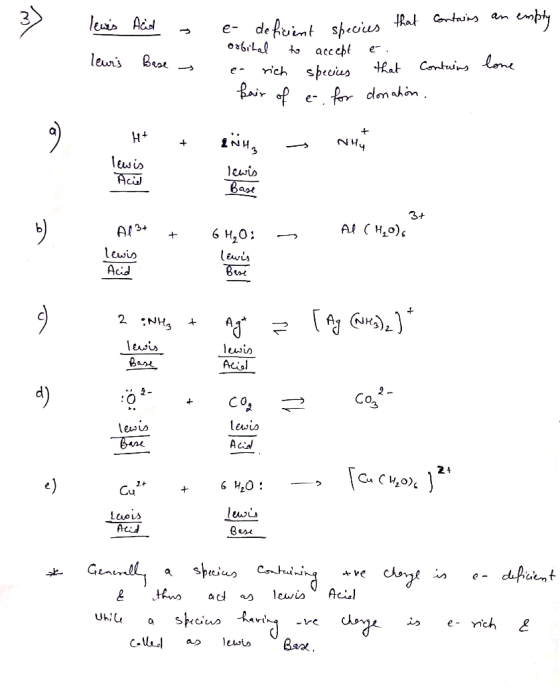 3) Lewis Acid → e- deficient species that contains an empty
orbital to accept e-.
Lewis Base → e- rich species that contains lone
pair of e-, for donation.
a) H+ + :NH3 → NH4+
Lewis Acid Lewis Base
b) Al3+ + 6 H2O: → Al (H2O)6 3+
Lewis Acid Lewis Base
c) 2 :NH3 + Ag+ ⇌ [Ag (NH3)2]+
Lewis Base Lewis Acid
d) :Ö: 2- + CO2 ⇌ CO3 2-
Lewis Base Lewis Acid.
e) Cu2+ + 6 H2O: → [Cu (H2O)6]2+
Lewis Acid Lewis Base
* Generally a species containing +ve charge is e- deficient
& thus act as Lewis Acid
While a species having -ve charge is e- rich &
called as Lewis Base.